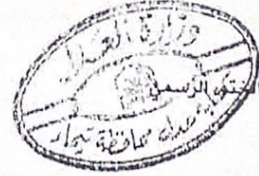 وزارة العدل
الختم الرسمي
محافظة تيماء